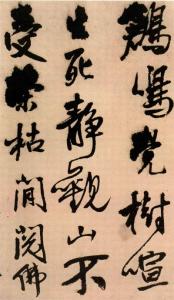 覺樹喧
生死靜觀山不
受榮枯閒閱佛